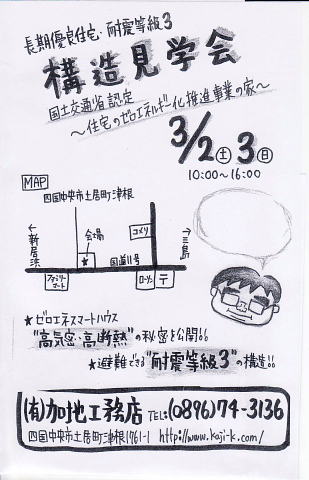 長期優良住宅・耐震等級3
構造見学会
国土交通省認定
～住宅のゼロエネルギー化推進事業の家～
3/2(土)3(日)
10:00～16:00
MAP
四国中央市土居町津根
←新居浜
会場
★
コメリ
→三島
国道11号
ファミリーマート
ローソン
〒
★ゼロエネスマートハウス
"高気密・高断熱"の秘密を公開!!
★避難できる"耐震等級3"の構造!!
(有)加地工務店 TEL:(0896)74-3136
四国中央市土居町津根1761-1 http://www.kaji-k.com/